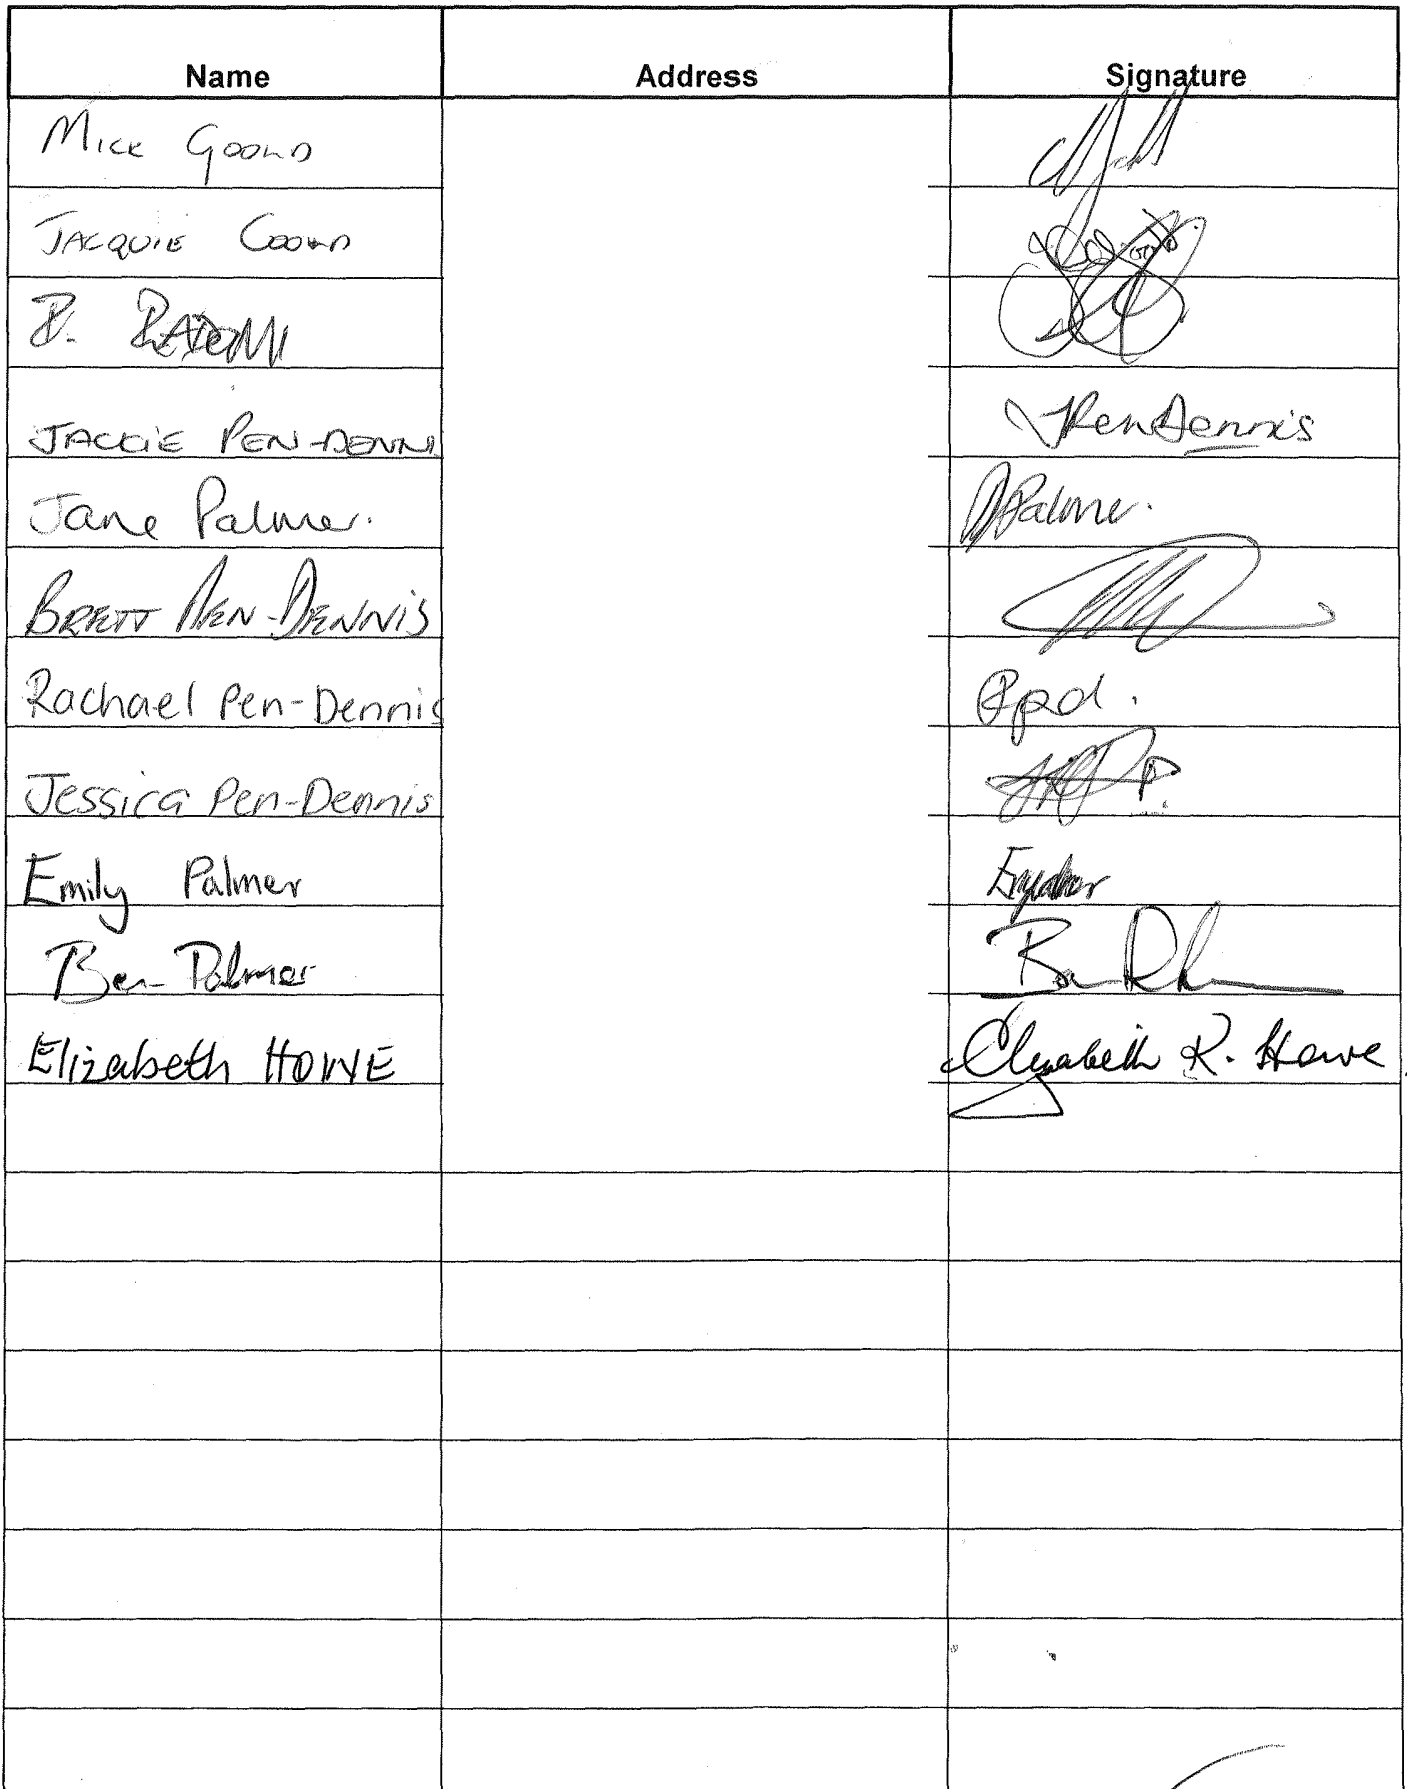 Name Address Signature
MICK
JACQUIE
R.
JACKIE PEN-DENNI JPenDennis
Jane Palmer. JPalmer.
BRETT PEN-DENNIS
Rachael Pen-Dennis Rpd.
Jessica Pen-Dennis
Emily Palmer
Ben Palmer Ben
Elizabeth HOWE Elizabeth R. Howe